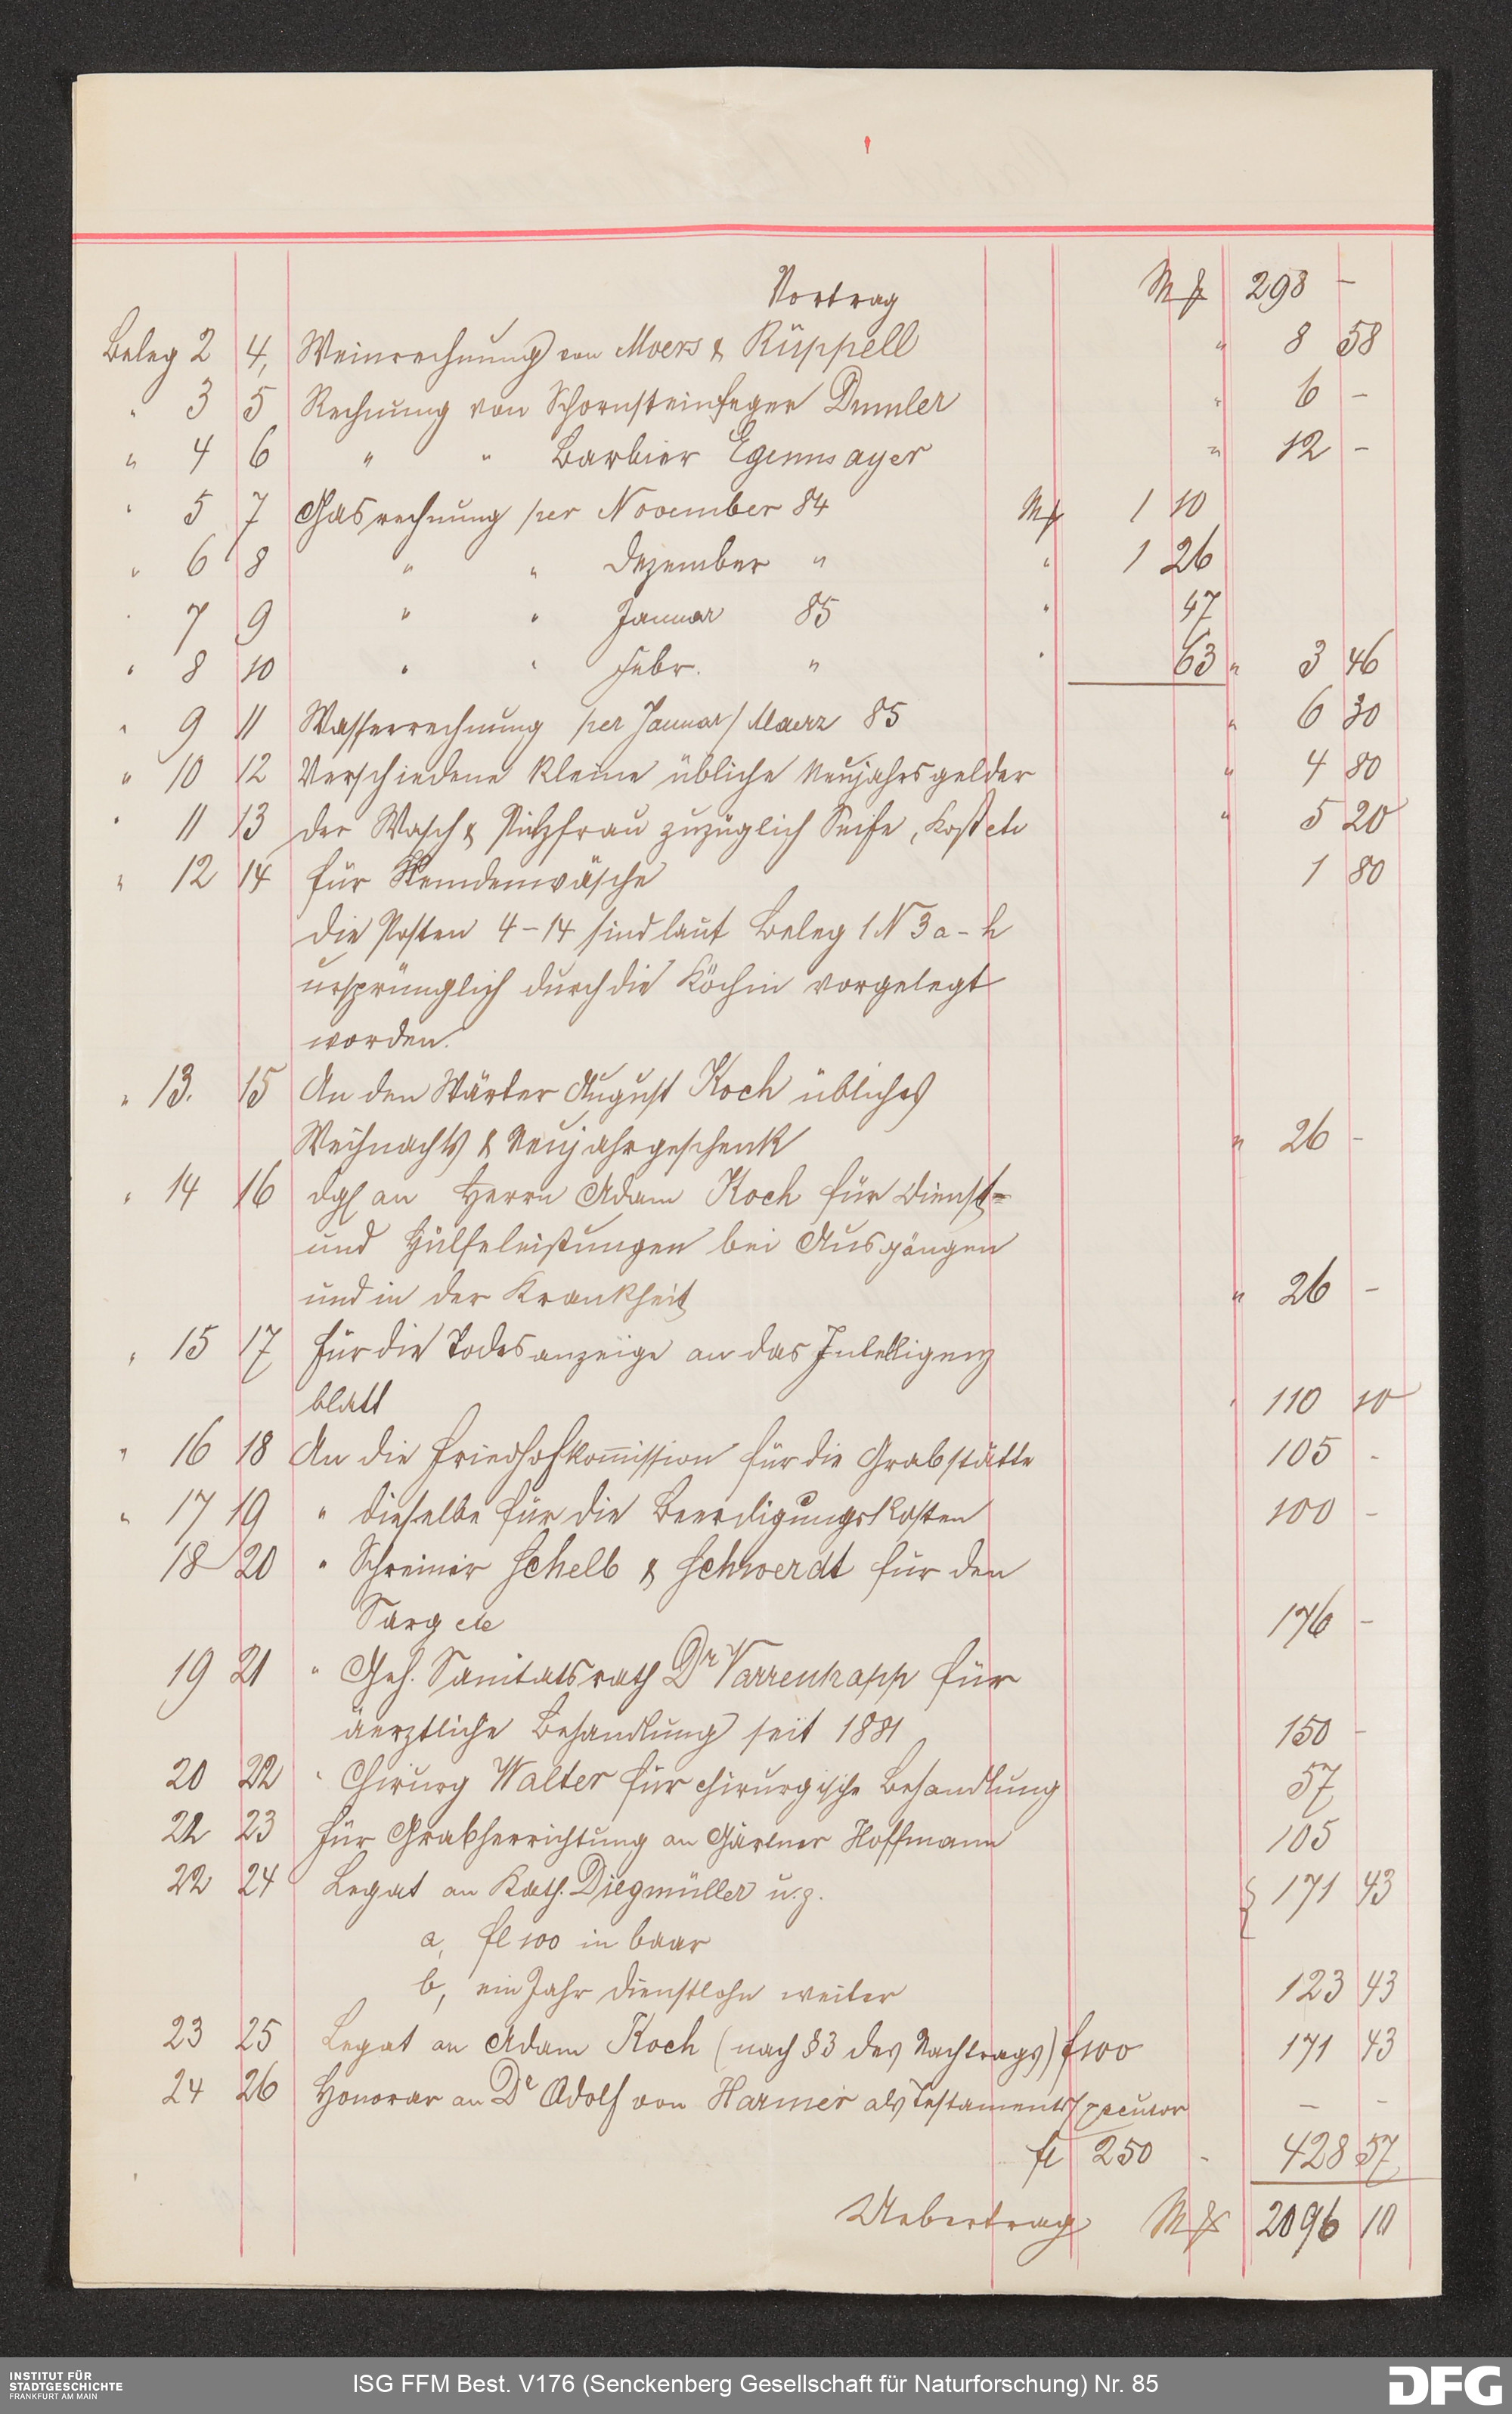 Vortrag Mk 293 –
Beleg 2 4, Weinrechnung von Moers & Rüppell " 8 58
" 3 5 Rechnung von Schornsteinfeger Dumler " 6 –
" 4 6 " " Barbier Egenmayer " 12 –
" 5 7 Gasrechnung per November 84 Mk 1 10
" 6 8 " " Dezember " " 1 26
" 7 9 " " Januar 85 " 47
" 8 10 " " Febr. " " 63 " 3 46
" 9 11 Wasserrechnung per Januar/Maerz 85 " 6 30
" 10 12 Verschiedene kleine übliche Neujahrsgelder " 4 80
" 11 13 der Wasch & Putzfrau zuzüglich Seife, Kost etc " 5 20
" 12 14 für Hemdenwäsche 1 80
die Posten 4–14 sind laut Beleg 1 N 3 a–h
ursprünglich durch die Köchin vorgelegt
worden.
" 13. 15 An den Wärter August Koch übliches
Weihnachts & Neujahrgeschenk " 26 –
" 14 16 dgl an Herrn Adam Koch für Dienst-
und Hülfeleistungen bei Ausgängen
und in der Krankheit " 26 –
" 15 17 für die Todesanzeige an das Intelligenz
blatt " 110 10
" 16 18 An die Friedhofkom̅ission für die Grabstätte 105 -
" 17 19 " dieselbe für die Beerdigungskosten 100 –
18 20 " Schreiner Schelb & Schwerdt für den
Sarg etc 176 –
19 21 " Geh. Sanitatsrath Dr Varrentrapp für
äerztliche Behandlung seit 1881 150 –
20 22 " Chirurg Walter für chirurgische Behandlung 57
21 23 für Grabherrichtung an Gärtner Hoffmann 105
22 24 Legat an Kath. Diegmüller u. z. 171 43
a, fl 100 in baar
b, ein Jahr Dienstlohn weiter 123 43
23 25 Legat an Adam Koch (nach § 3 des Nachtrags) f 100 171 43
24 26 Honorar an Dr Adolf von Harnier als Testamentsexecutor – –
fl 250 - 428 57
Uebertrag Mk 2096 10
INSTITUT FÜR
STADTGESCHICHTE
FRANKFURT AM MAIN
ISG FFM Best. V176 (Senckenberg Gesellschaft für Naturforschung) Nr. 85
DFG